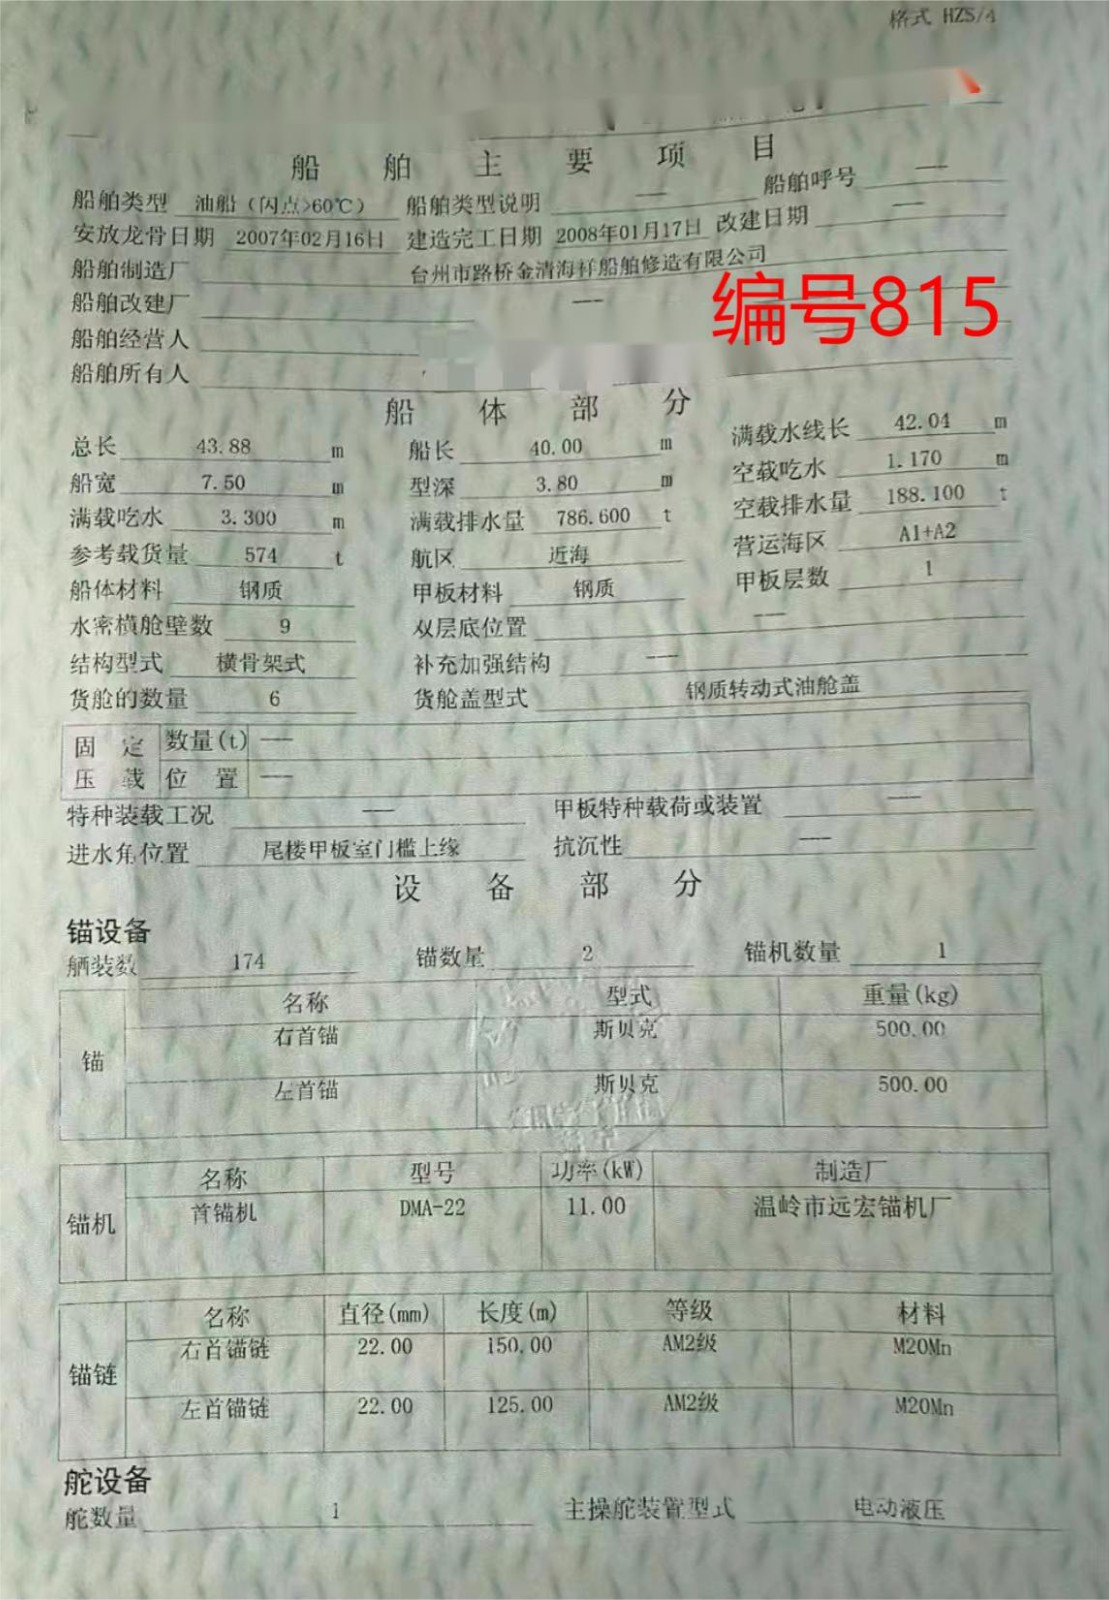 格式 HZS/4
船舶主要项目
船舶类型 油船（闪点>60℃） 船舶类型说明 —— 船舶呼号 ——
安放龙骨日期 2007年02月16日 建造完工日期 2008年01月17日 改建日期 ——
船舶制造厂 台州市路桥金清海祥船舶修造有限公司
编号815
船舶改建厂 ——
船舶经营人
船舶所有人
船体部分
总长 43.88 m 船长 40.00 m 满载水线长 42.04 m
船宽 7.50 m 型深 3.80 m 空载吃水 1.170 m
满载吃水 3.300 m 满载排水量 786.600 t 空载排水量 188.100 t
参考载货量 574 t 航区 近海 营运海区 A1+A2
船体材料 钢质 甲板材料 钢质 甲板层数 1
水密横舱壁数 9 双层底位置 ——
结构型式 横骨架式 补充加强结构 ——
货舱的数量 6 货舱盖型式 钢质转动式油舱盖
固定压载 数量(t) ——
位置 ——
特种装载工况 —— 甲板特种载荷或装置 ——
进水角位置 尾楼甲板室门槛上缘 抗沉性 ——
设备部分
锚设备
舾装数 174 锚数量 2 锚机数量 1
锚 名称 型式 重量(kg)
右首锚 斯贝克 500.00
左首锚 斯贝克 500.00
锚机 名称 型号 功率(kW) 制造厂
首锚机 DMA-22 11.00 温岭市远宏锚机厂
锚链 名称 直径(mm) 长度(m) 等级 材料
右首锚链 22.00 150.00 AM2级 M20Mn
左首锚链 22.00 125.00 AM2级 M20Mn
舵设备
舵数量 1 主操舵装置型式 电动液压